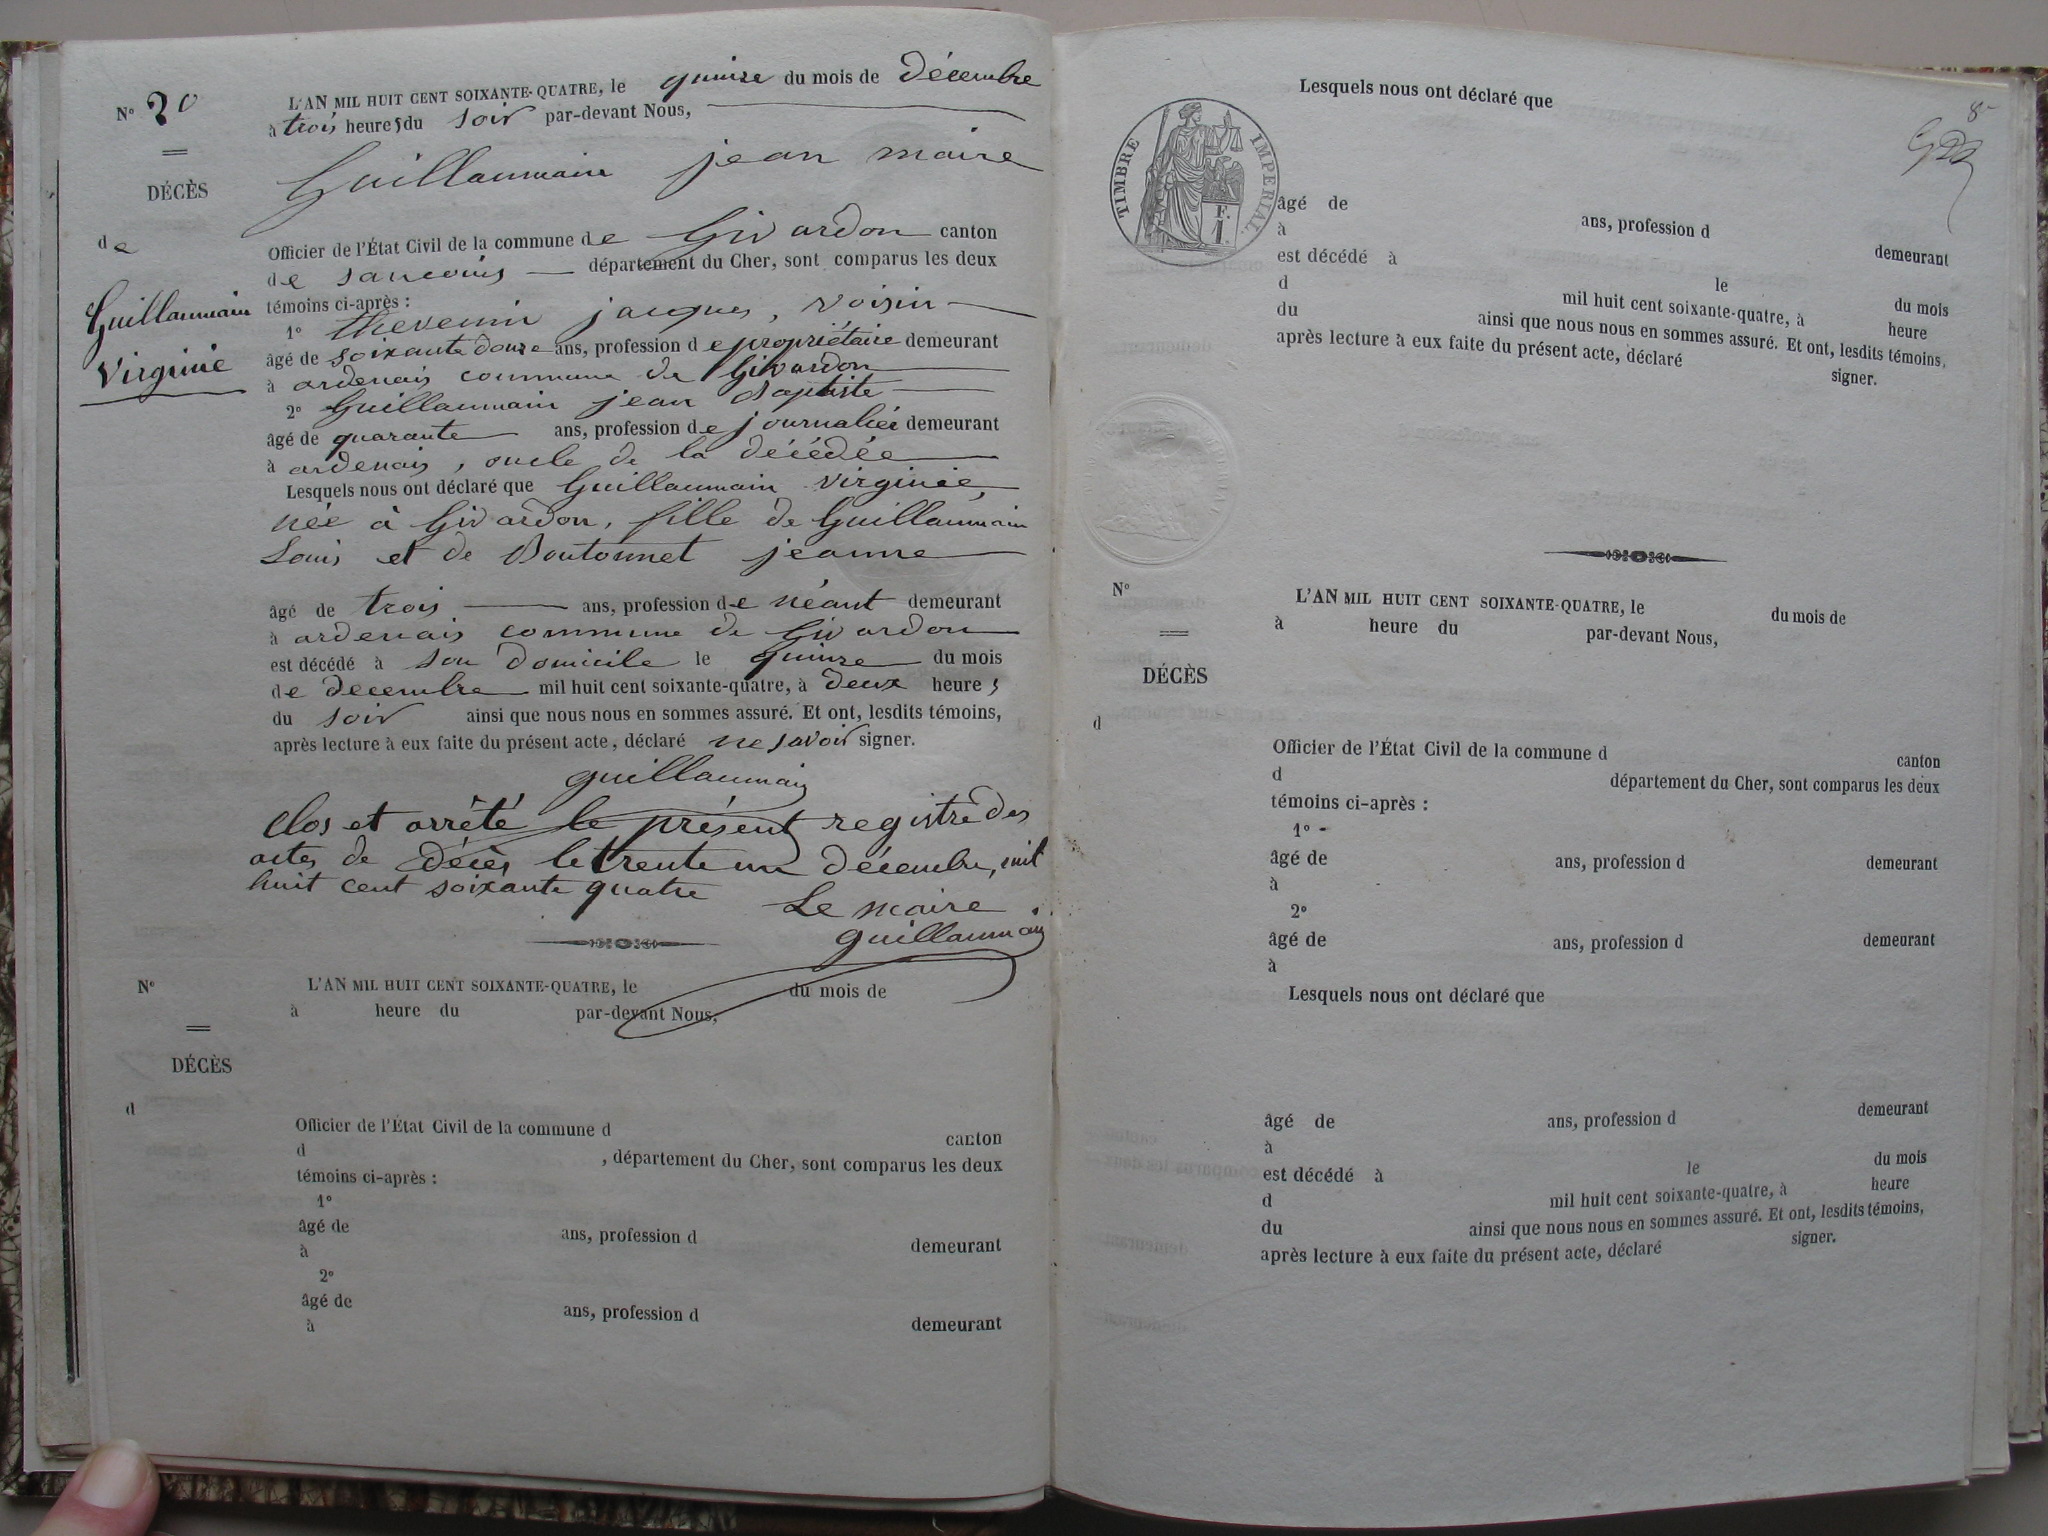 N° 20
L'AN MIL HUIT CENT SOIXANTE-QUATRE, le quinze du mois de décembre
à trois heures du soir par-devant Nous,
Guillaumain jean maire
DÉCÈS
de
Guillaumain
Virginie
Officier de l'État Civil de la commune de Givardon canton
de sancoins département du Cher, sont comparus les deux
témoins ci-après :
1° thevenin jacques, voisin
âgé de soixante douze ans, profession de propriétaire demeurant
à ardenais commune de Givardon
2° Guillaumain jean Baptiste
âgé de quarante ans, profession de journalier demeurant
à ardenais, oncle de la décédée
Lesquels nous ont déclaré que Guillaumain virginie,
née à Givardon, fille de Guillaumain
Louis et de Boutonnet jeanne
âgé de trois ans, profession de néant demeurant
à ardenais commune de Givardon
est décédé à son domicile le quinze du mois
de decembre mil huit cent soixante-quatre, à deux heures
du soir ainsi que nous nous en sommes assuré. Et ont, lesdits témoins,
après lecture à eux faite du présent acte, déclaré ne savoir signer.
guillaumain
Clos et arrêté le présent registre des
actes de décès le trente un décembre, mil
huit cent soixante quatre Le maire
guillaumain
N° L'AN MIL HUIT CENT SOIXANTE-QUATRE, le du mois de
à heure du par-devant Nous,
DÉCÈS
d
Officier de l'État Civil de la commune d canton
d , département du Cher, sont comparus les deux
témoins ci-après :
1°
âgé de ans, profession d demeurant
à
2°
âgé de ans, profession d demeurant
à
Lesquels nous ont déclaré que
8
TIMBRE IMPERIAL
F.
1.
âgé de ans, profession d demeurant
à
est décédé à le du mois
d mil huit cent soixante-quatre, à heure
du ainsi que nous nous en sommes assuré. Et ont, lesdits témoins,
après lecture à eux faite du présent acte, déclaré signer.
N° L'AN MIL HUIT CENT SOIXANTE-QUATRE, le du mois de
à heure du par-devant Nous,
DÉCÈS
d
Officier de l'État Civil de la commune d canton
d département du Cher, sont comparus les deux
témoins ci-après :
1°
âgé de ans, profession d demeurant
à
2°
âgé de ans, profession d demeurant
à
Lesquels nous ont déclaré que
âgé de ans, profession d demeurant
à
est décédé à le du mois
d mil huit cent soixante-quatre, à heure
du ainsi que nous nous en sommes assuré. Et ont, lesdits témoins,
après lecture à eux faite du présent acte, déclaré signer.